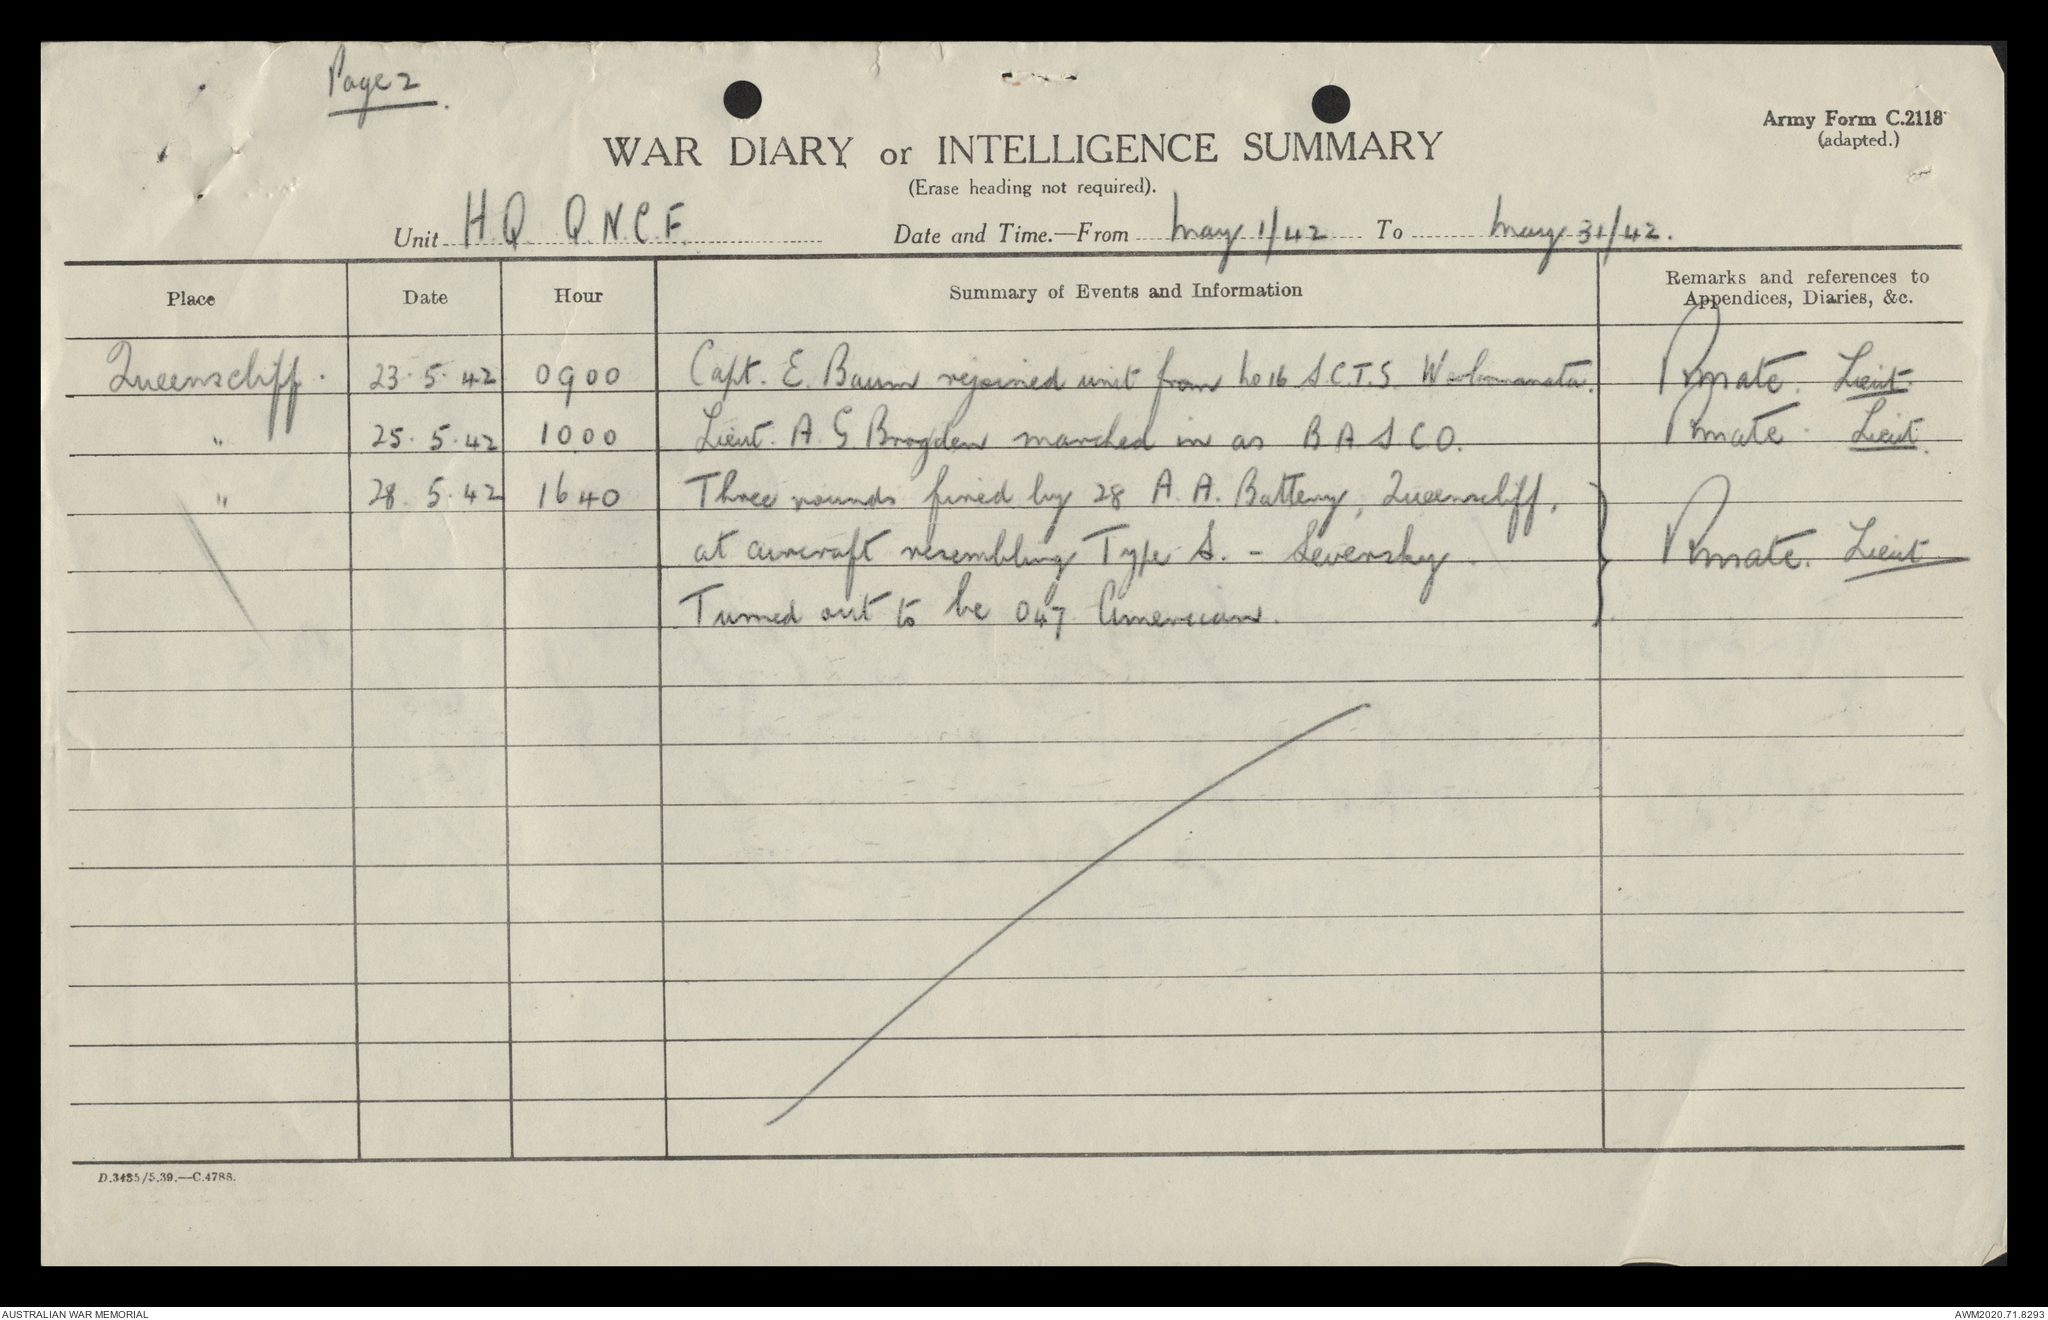 Page 2.
Army Form C.2118
(adapted.)
WAR DIARY or INTELLIGENCE SUMMARY
(Erase heading not required).
Unit H.Q. Q.N.C.F. Date and Time.—From May 1/42 To May 31/42.
Place Date Hour Summary of Events and Information Remarks and references to
Appendices, Diaries, &c.
Queenscliff. 23.5.42 0900 Capt. E. Baum rejoined unit from No 16 S.C.T.S. Wirlomanata. Pmate. Lieut.
" 25.5.42 1000 Lieut. A G Brogden marched in as B A S C O. Pmate. Lieut.
" 28.5.42 1640 Three rounds fired by 28 A.A. Battery, Queenscliff,
at aircraft resembling Type S. - Seversky. Pmate. Lieut
Turned out to be 047 American.
D.3485/5.39.—C.4788.
AUSTRALIAN WAR MEMORIAL
AWM2020.71.8293